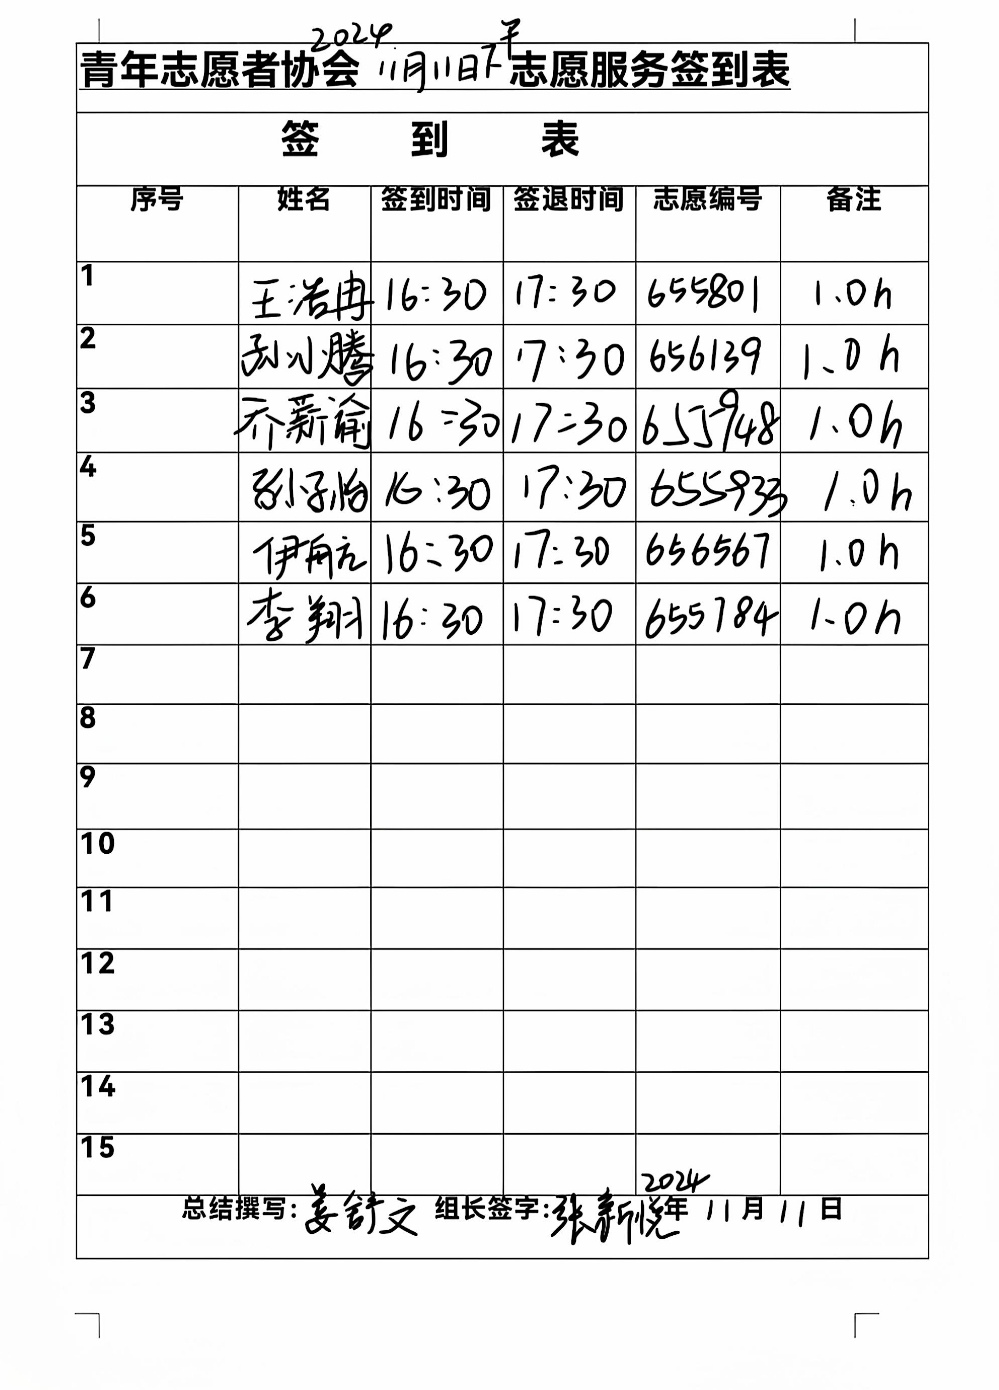 青年志愿者协会2024 11月11日下午志愿服务签到表
签 到 表
序号 姓名 签到时间 签退时间 志愿编号 备注
1 王浩冉 16:30 17:30 655801 1.0h
2 孙小腾 16:30 17:30 656139 1.0h
3 乔新谕 16:30 17:30 655948 1.0h
4 孙子怡 16:30 17:30 655933 1.0h
5 伊航 16:30 17:30 656567 1.0h
6 李翔 16:30 17:30 655784 1.0h
7
8
9
10
11
12
13
14
15
总结撰写:姜舒文 组长签字:张新悦 2024年11月11日